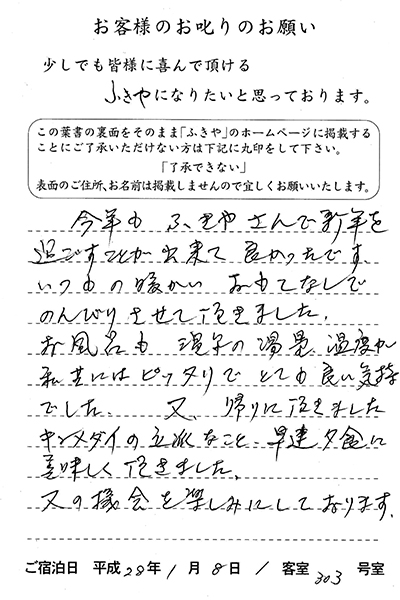 お客様のお叱りのお願い
少しでも皆様に喜んで頂ける
ふきやになりたいと思っております。
この葉書の裏面をそのまま「ふきや」のホームページに掲載する
ことにご了承いただけない方は下記に丸印をして下さい。
「了承できない」
表面のご住所、お名前は掲載しませんので宜しくお願いいたします。
今年も ふきやさんで新年を
過ごすことが出来て 良かったです、
いつもの暖かい おもてなしで
のんびりさせて頂きました、
お風呂も 湯量、温度が
私共にはピッタリで とても良い気持
でした 又、帰りに頂きました
キンメダイの立派なこと、早速夕食に
美味しく頂きました、
又の機会を楽しみにしております、
ご宿泊日 平成28年1月8日 / 客室303号室